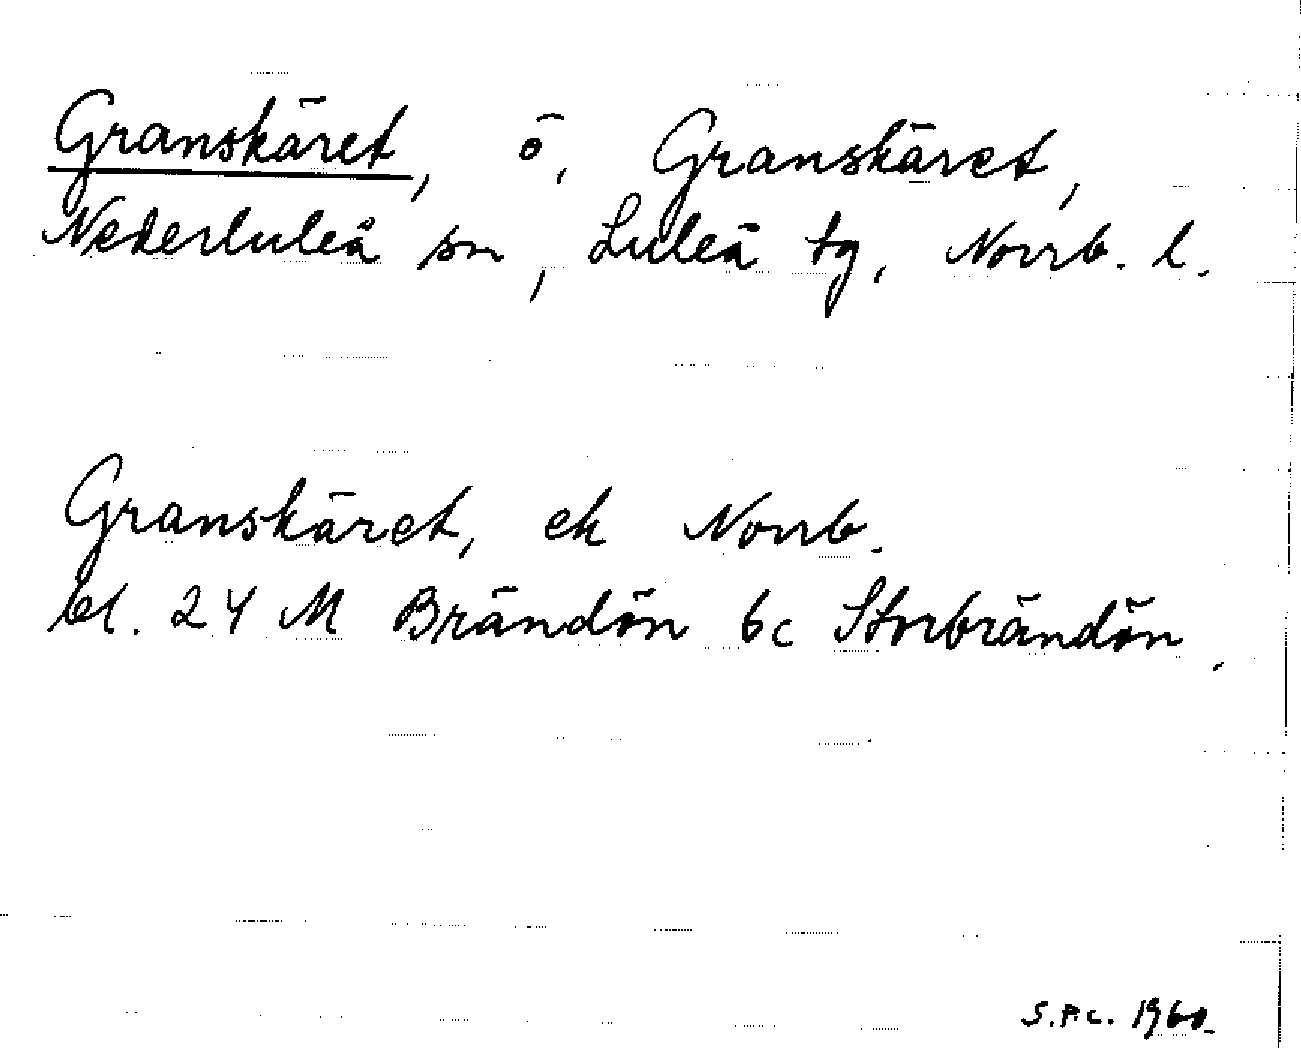 Granskäret, ö, Granskäret,
Nederluleå sn, Luleå tg, Norrb. l.
Granskäret, ek Norrb.
bl. 24 M Brändön 6c Storbrändön.
S.P.C. 1960